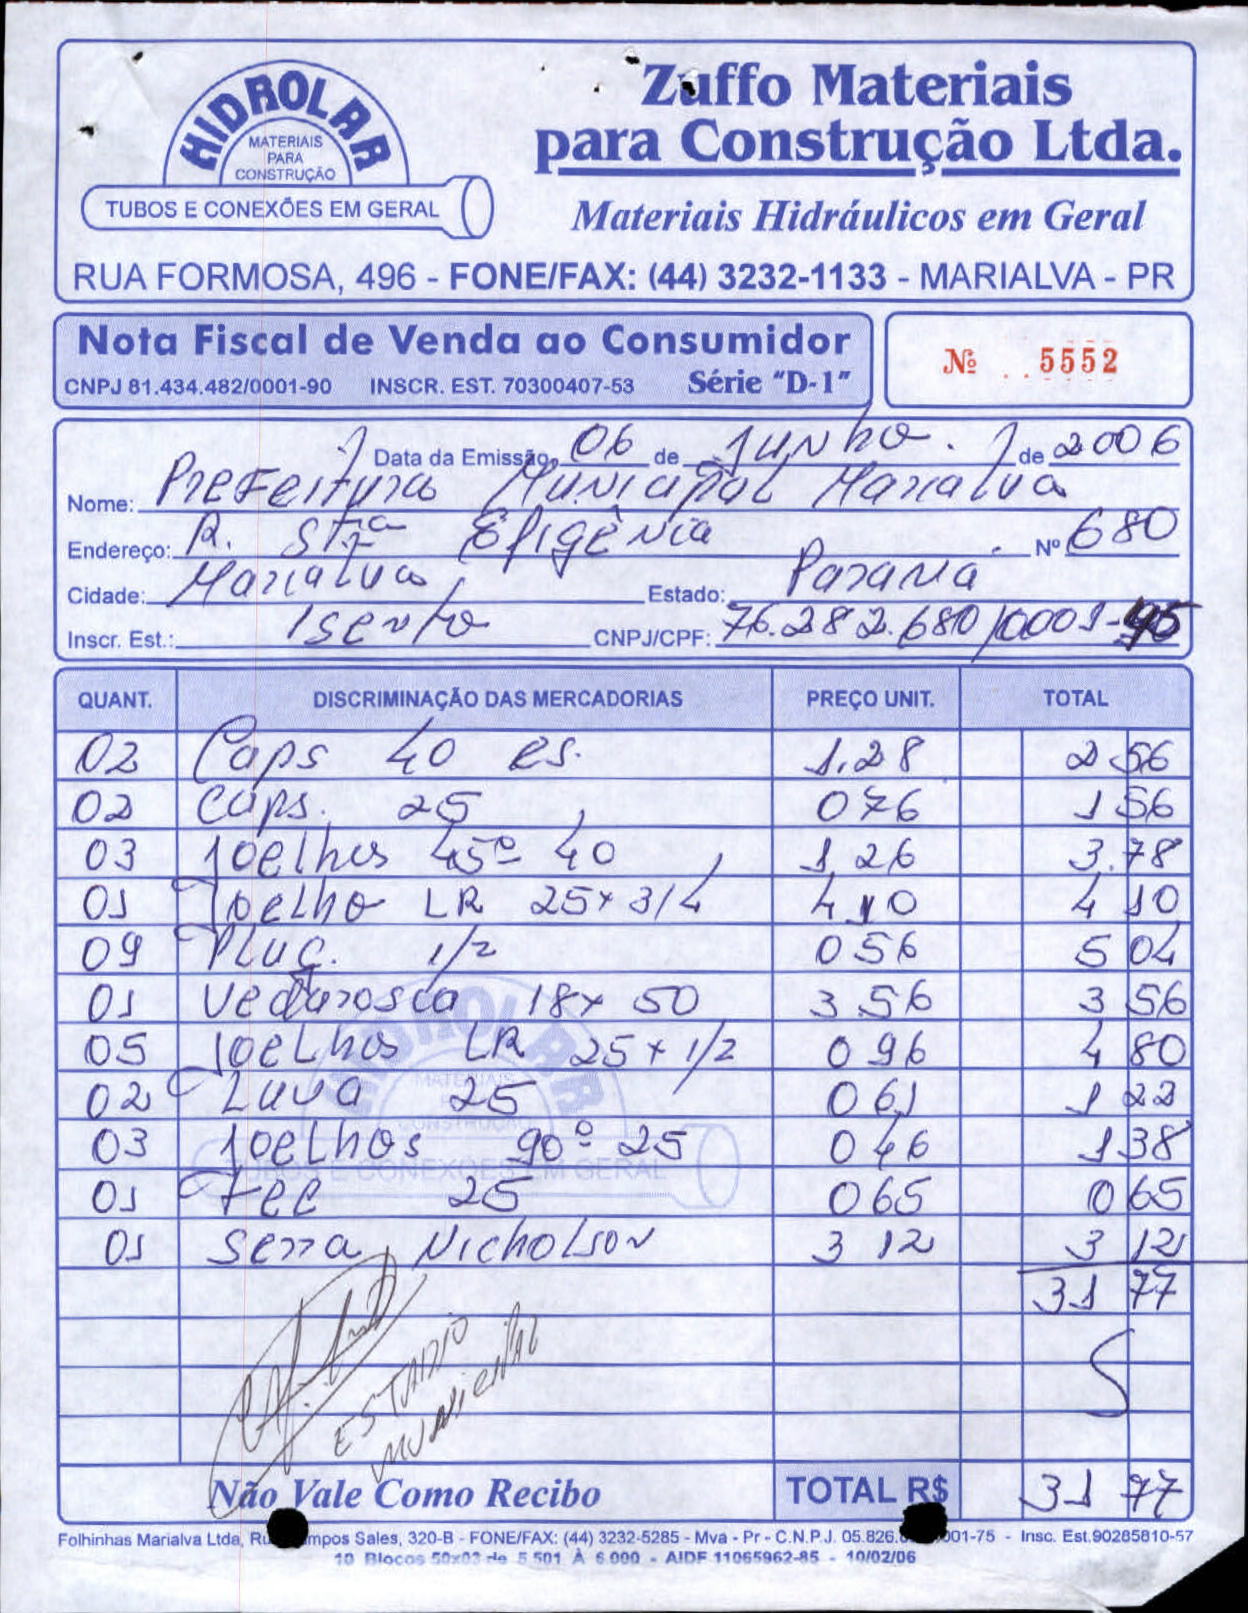 HIDROLAR
MATERIAIS
PARA
CONSTRUÇÃO
TUBOS E CONEXÕES EM GERAL
Zuffo Materiais
para Construção Ltda.
Materiais Hidráulicos em Geral
RUA FORMOSA, 496 - FONE/FAX: (44) 3232-1133 - MARIALVA - PR
Nota Fiscal de Venda ao Consumidor
CNPJ 81.434.482/0001-90 INSCR. EST. 70300407-53 Série "D-1"
Nº 5552
Data da Emissão, 06 de Junho de 2006
Nome: Prefeitura Municipal Marialva
Endereço: R. Stª Efigênia Nº 680
Cidade: Marialva Estado: Paraná
Inscr. Est.: Isento CNPJ/CPF: 76.282.680/0001-45
QUANT. DISCRIMINAÇÃO DAS MERCADORIAS PREÇO UNIT. TOTAL
02 Caps 40 es. 1.28 2 56
02 Caps. 25 0 76 1 56
03 Joelhos 45º 40 1 26 3.78
01 Joelho LR 25x3/4 4 10 4 10
09 Plug. 1/2 0 56 5 04
01 Vedarosca 18x50 3 56 3 56
05 Joelhos LR 25x1/2 0 96 4 80
02 Luva 25 0 61 1 22
03 Joelhos 90º 25 0 46 1 38
01 Tee 25 0 65 0 65
01 Serra Nicholson 3 12 3 12
31 77
ESTADIO
MUNICIPAL
Não Vale Como Recibo TOTAL R$ 31 77
Folhinhas Marialva Ltda, mpos Sales, 320-B - FONE/FAX: (44) 3232-5285 - Mva - Pr - C.N.P.J. 05.826. 001-75 - Insc. Est.90285810-57
10 Blocos 50x03 de 5.501 À 6.000 - AIDF 11065962-85 - 10/02/06